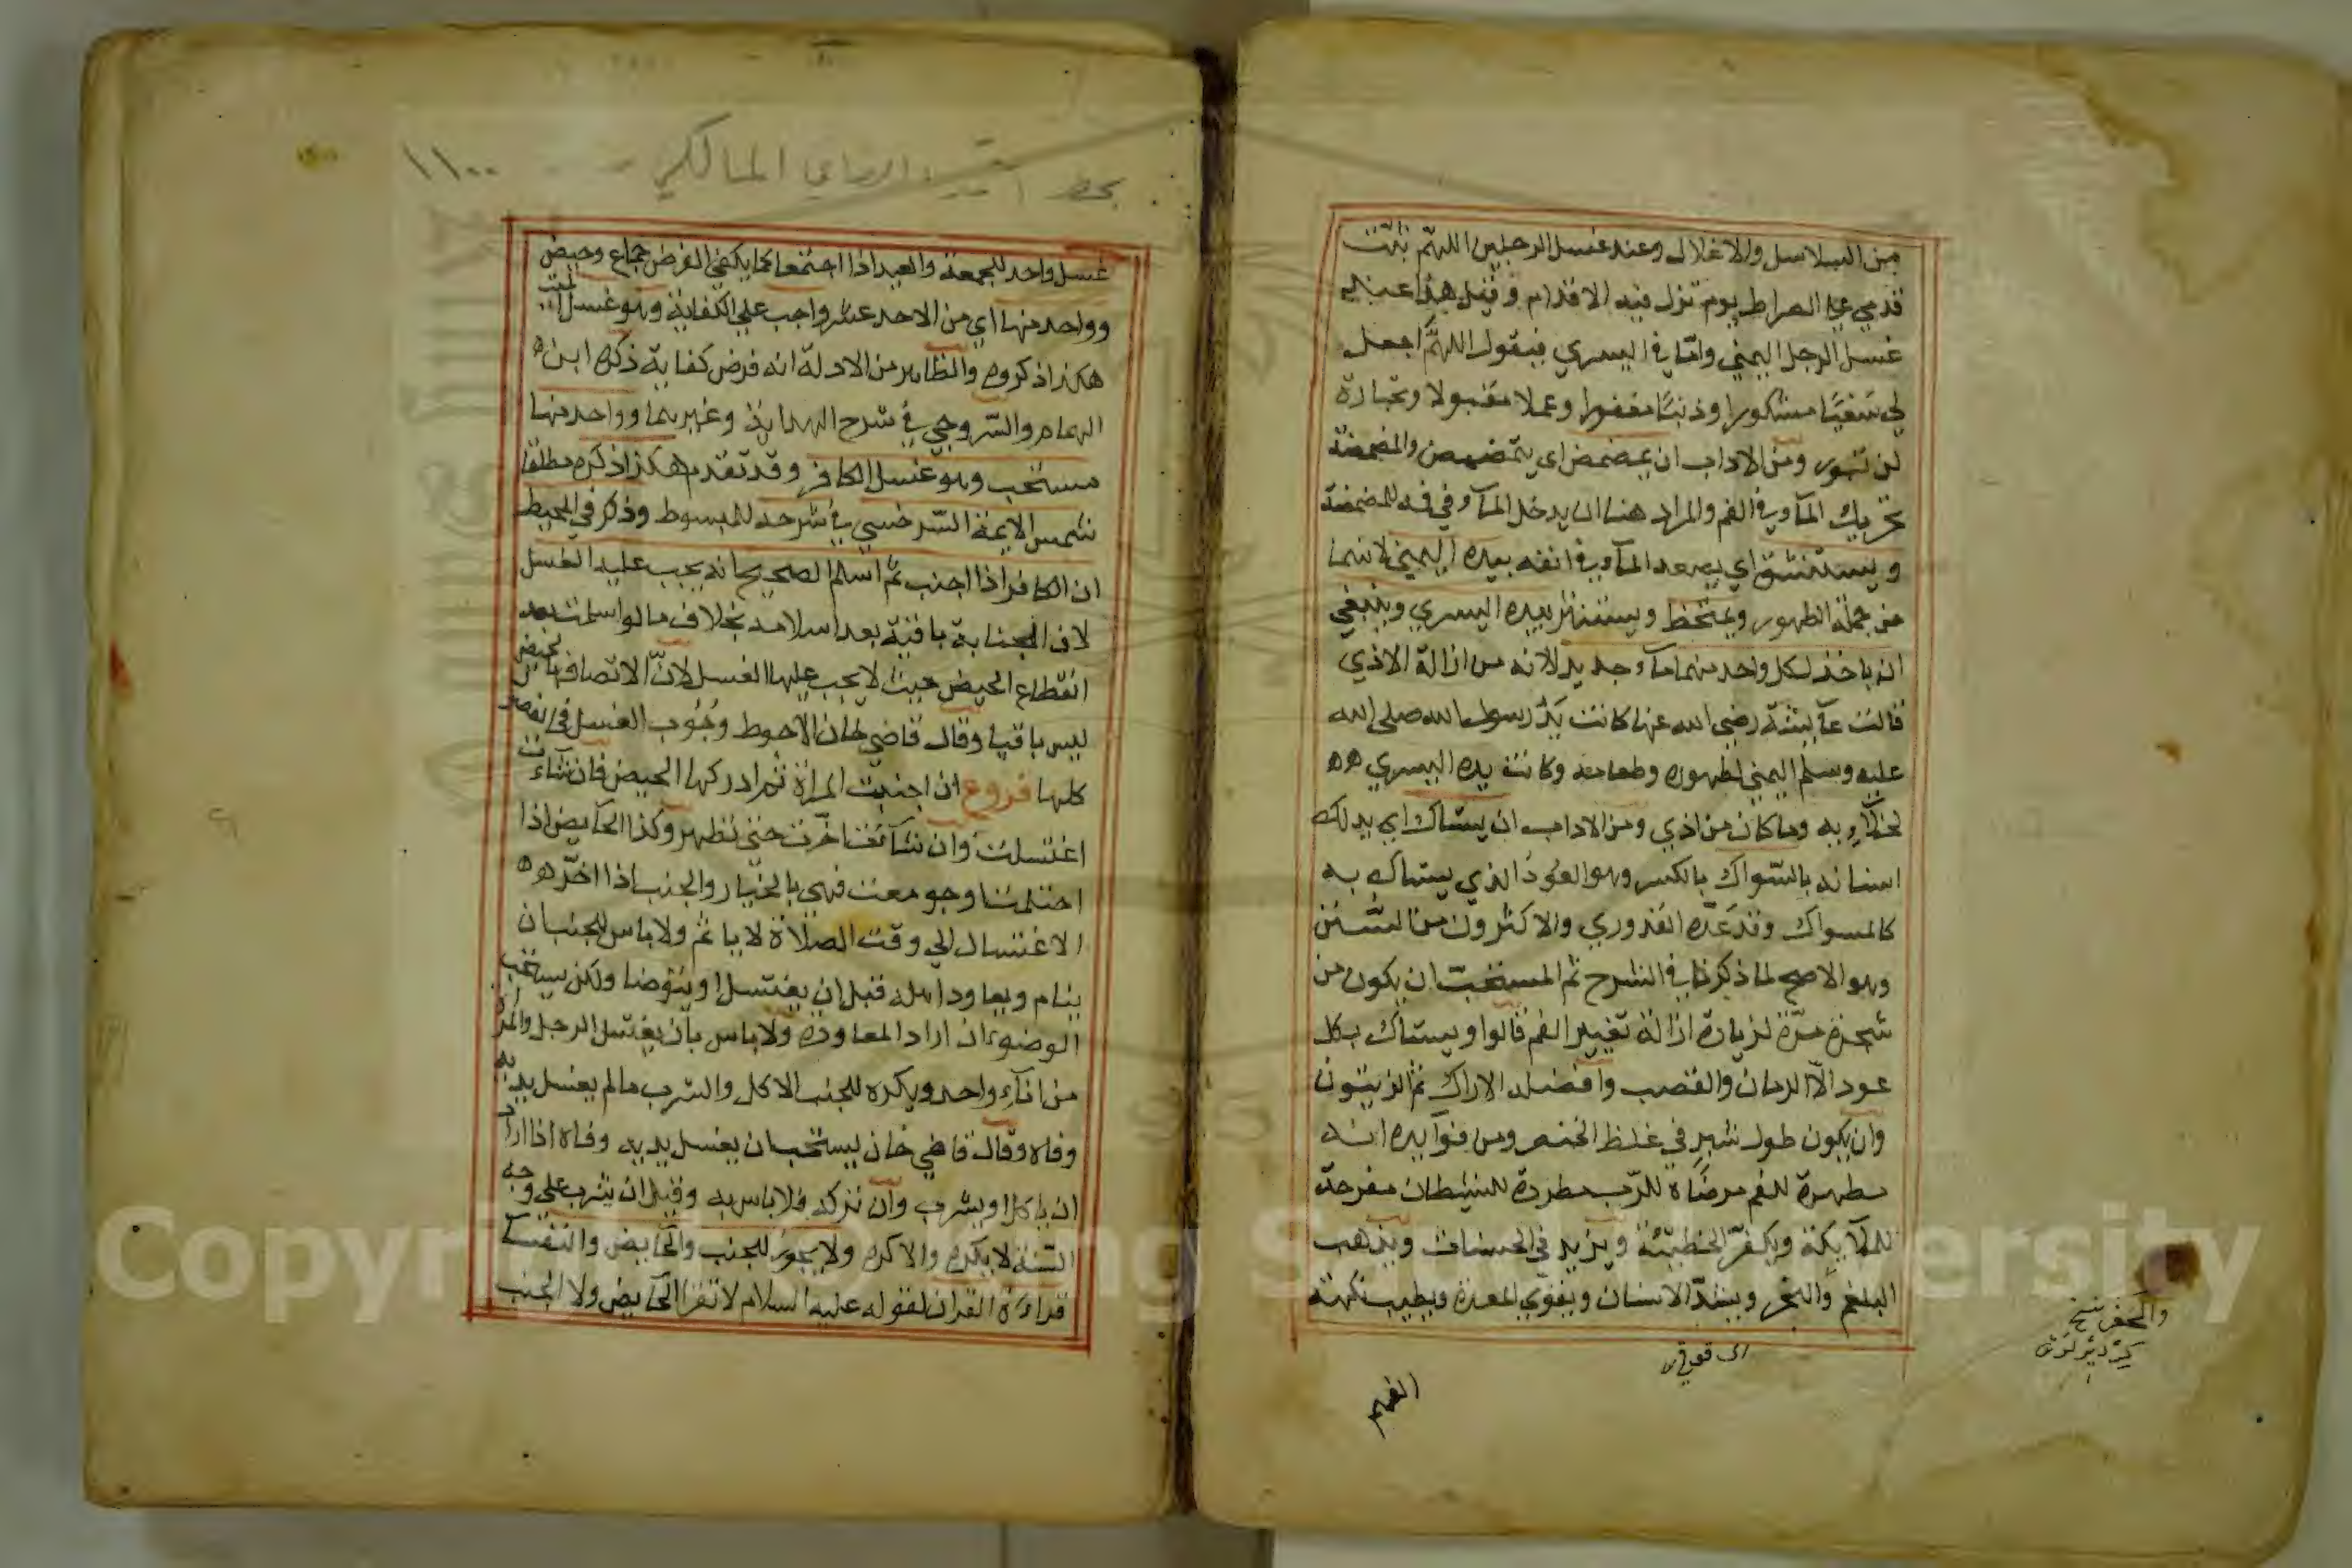 من السلاسل والاغلال وعند غسل الرجلين اللهم ثبت
قدمي على الصراط يوم تزل فيه الاقدام وقيل هذا عند
غسل الرجل اليمني واما في اليسري فيقول اللهم اجعل
لي سعيا مشكورا وذنبا مغفورا وعملا مقبولا وتجارة
لن تبور ومن الاداب ان يمضمض اي يتمضمض والمضمضة
تحريك المآء في الفم والمراد هنا ان يدخل المآء في فيه للمضمضة
ويستنشق اي يصعد المآء في انفه بيده اليمني لانهما
من جملة الطهور ويمتخط ويستنثر بيده اليسري وينبغي
ان ياخذ لكل واحد منهما مآء جديد لانه من ازالة الاذي
قالت عآيشة رضي الله عنها كانت يد رسول الله صلى الله
عليه وسلم اليمني لطهوره وطعامه وكانت يده اليسري
لخلآءِه وما كان من اذي ومن الاداب ان يستاك اي يدلك
اسنانه بالسواك بالكسر وهو العود الذي يستاك به
كالمسواك وقد عده القدوري والاكثرون من السنن
وهو الاصح لما ذكرنا في الشرح ثم المستحب ان يكون من
شجرة مرة لزيادة ازالة تغيير الفم قالوا ويستاك بكل
عود الا الرمان والقصب وافضله الاراك ثم الزيتون
وان يكون طول شبر في غلظ الخنصر ومن فوآيده انه
مطهرة للفم مرضاة للرب مطردة للشيطان مفرحة
للملآيكة ويكفر الخطيئة ويزيد في الحسنات ويذهب
البلغم والبخر ويشد الاسنان ويقوي المعدة ويطيب نكهة
الفم
بخط المالكي
١١٠٠
غسل واحد للجمعة والعيد اذا اجتمعا كما يكفي الفرض جماع وحيض
وواحد منها اي من الاحد عشر واجب على الكفاية وهو غسل الميت
هكذا ذكروه والظاهر من الادلة انه فرض كفاية ذكره ابن
الهمام والسروجي في شرح الهداية وغيرهما وواحد منها
مستحب وهو غسل الكافر وقد تقدم هكذا ذكره مطلقا
شمس الايمة السرخسي في شرحه للمبسوط وذكر في المحيط
ان الكافر اذا اجنب ثم اسلم الصحيح انه يجب عليه الغسل
لان الجنابة باقية بعد اسلامه بخلاف ما لو اسلمت بعد
انقطاع الحيض حيث لا يجب عليها الغسل لان الاتصاف بالحيض
ليس باقيا وقال قاضي خان الاحوط وجوب الغسل في الفصول
كلها فروع ان اجنبت المراة ثم ادركها الحيض فان شاءت
اغتسلت وان شآئت اخرت حتى تطهر وكذا الحآيض اذا
احتلمت او جومعت فهي بالخيار والجنب اذا اخر
الاغتسال الي وقت الصلاة لا ياثم ولا باس للجنب ان
ينام ويعاود اهله قبل ان يغتسل او يتوضا ولكن يستحب
الوضوء ان اراد المعاودة ولا باس بان يغتسل الرجل والمراة
من انآءٍ واحد ويكره للجنب الاكل والشرب مالم يغسل يديه
وفاه وقال قاضي خان يستحب ان يغسل يديه وفاه اذا اراد
ان ياكل او يشرب وان تركه فلا باس به وقيل ان يشرب على وجه
السنة لا يكره والا كره ولا يجوز للجنب والحآيض والنفسآ
قراءة القران لقوله عليه السلام لا تقرا الحآيض ولا الجنب